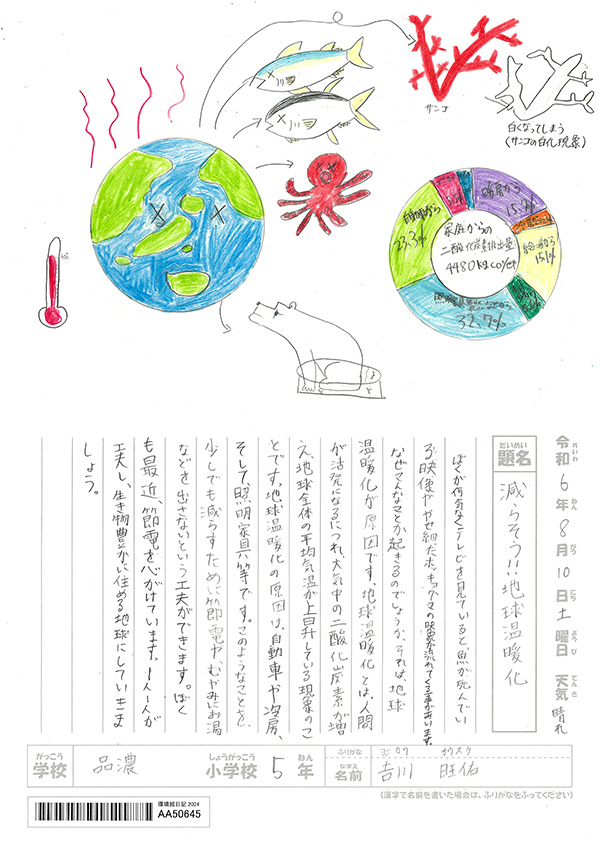 サンゴ
白くなってしまう
(サンゴの白化現象)
家庭からの
二酸化炭素排出量
4480kgCO₂/世帯
15.9%
給湯から
15.1%
32.7%
自動車から
23.3%
令和6年8月10日土曜日 天気 晴れ
れいわ ねん がつ にち ようび てんき
だいめい
題名 減らそう!!地球温暖化
ぼくが何気なくテレビを見ていると、魚が死んでい
る映像ややせ細ったホッキョクグマの映像が流れてくる事があります。
なぜこんなことが起きるのでしょうか。それは、地球
温暖化が原因です。地球温暖化とは、人間
が活発になるにつれ、大気中の二酸化炭素が増
え、地球全体の平均気温が上昇している現象のこ
とです。地球温暖化の原因は、自動車や冷房、
そして、照明家具等です。このようなことを、
少しでも減らすために節電や、むやみにお湯
などを出さないという工夫ができます。ぼく
も最近、節電を心がけています。一人一人が
工夫し、生き物豊かに住める地球にしていきま
しょう。
がっこう しょうがっこう ねん
学校 品濃 小学校 5年
ふりがな ヨシカワ オウスケ
なまえ
名前 吉川 旺佑
(漢字で名前を書いた場合は、ふりがなをふってください)
環境絵日記 2024
AA50645